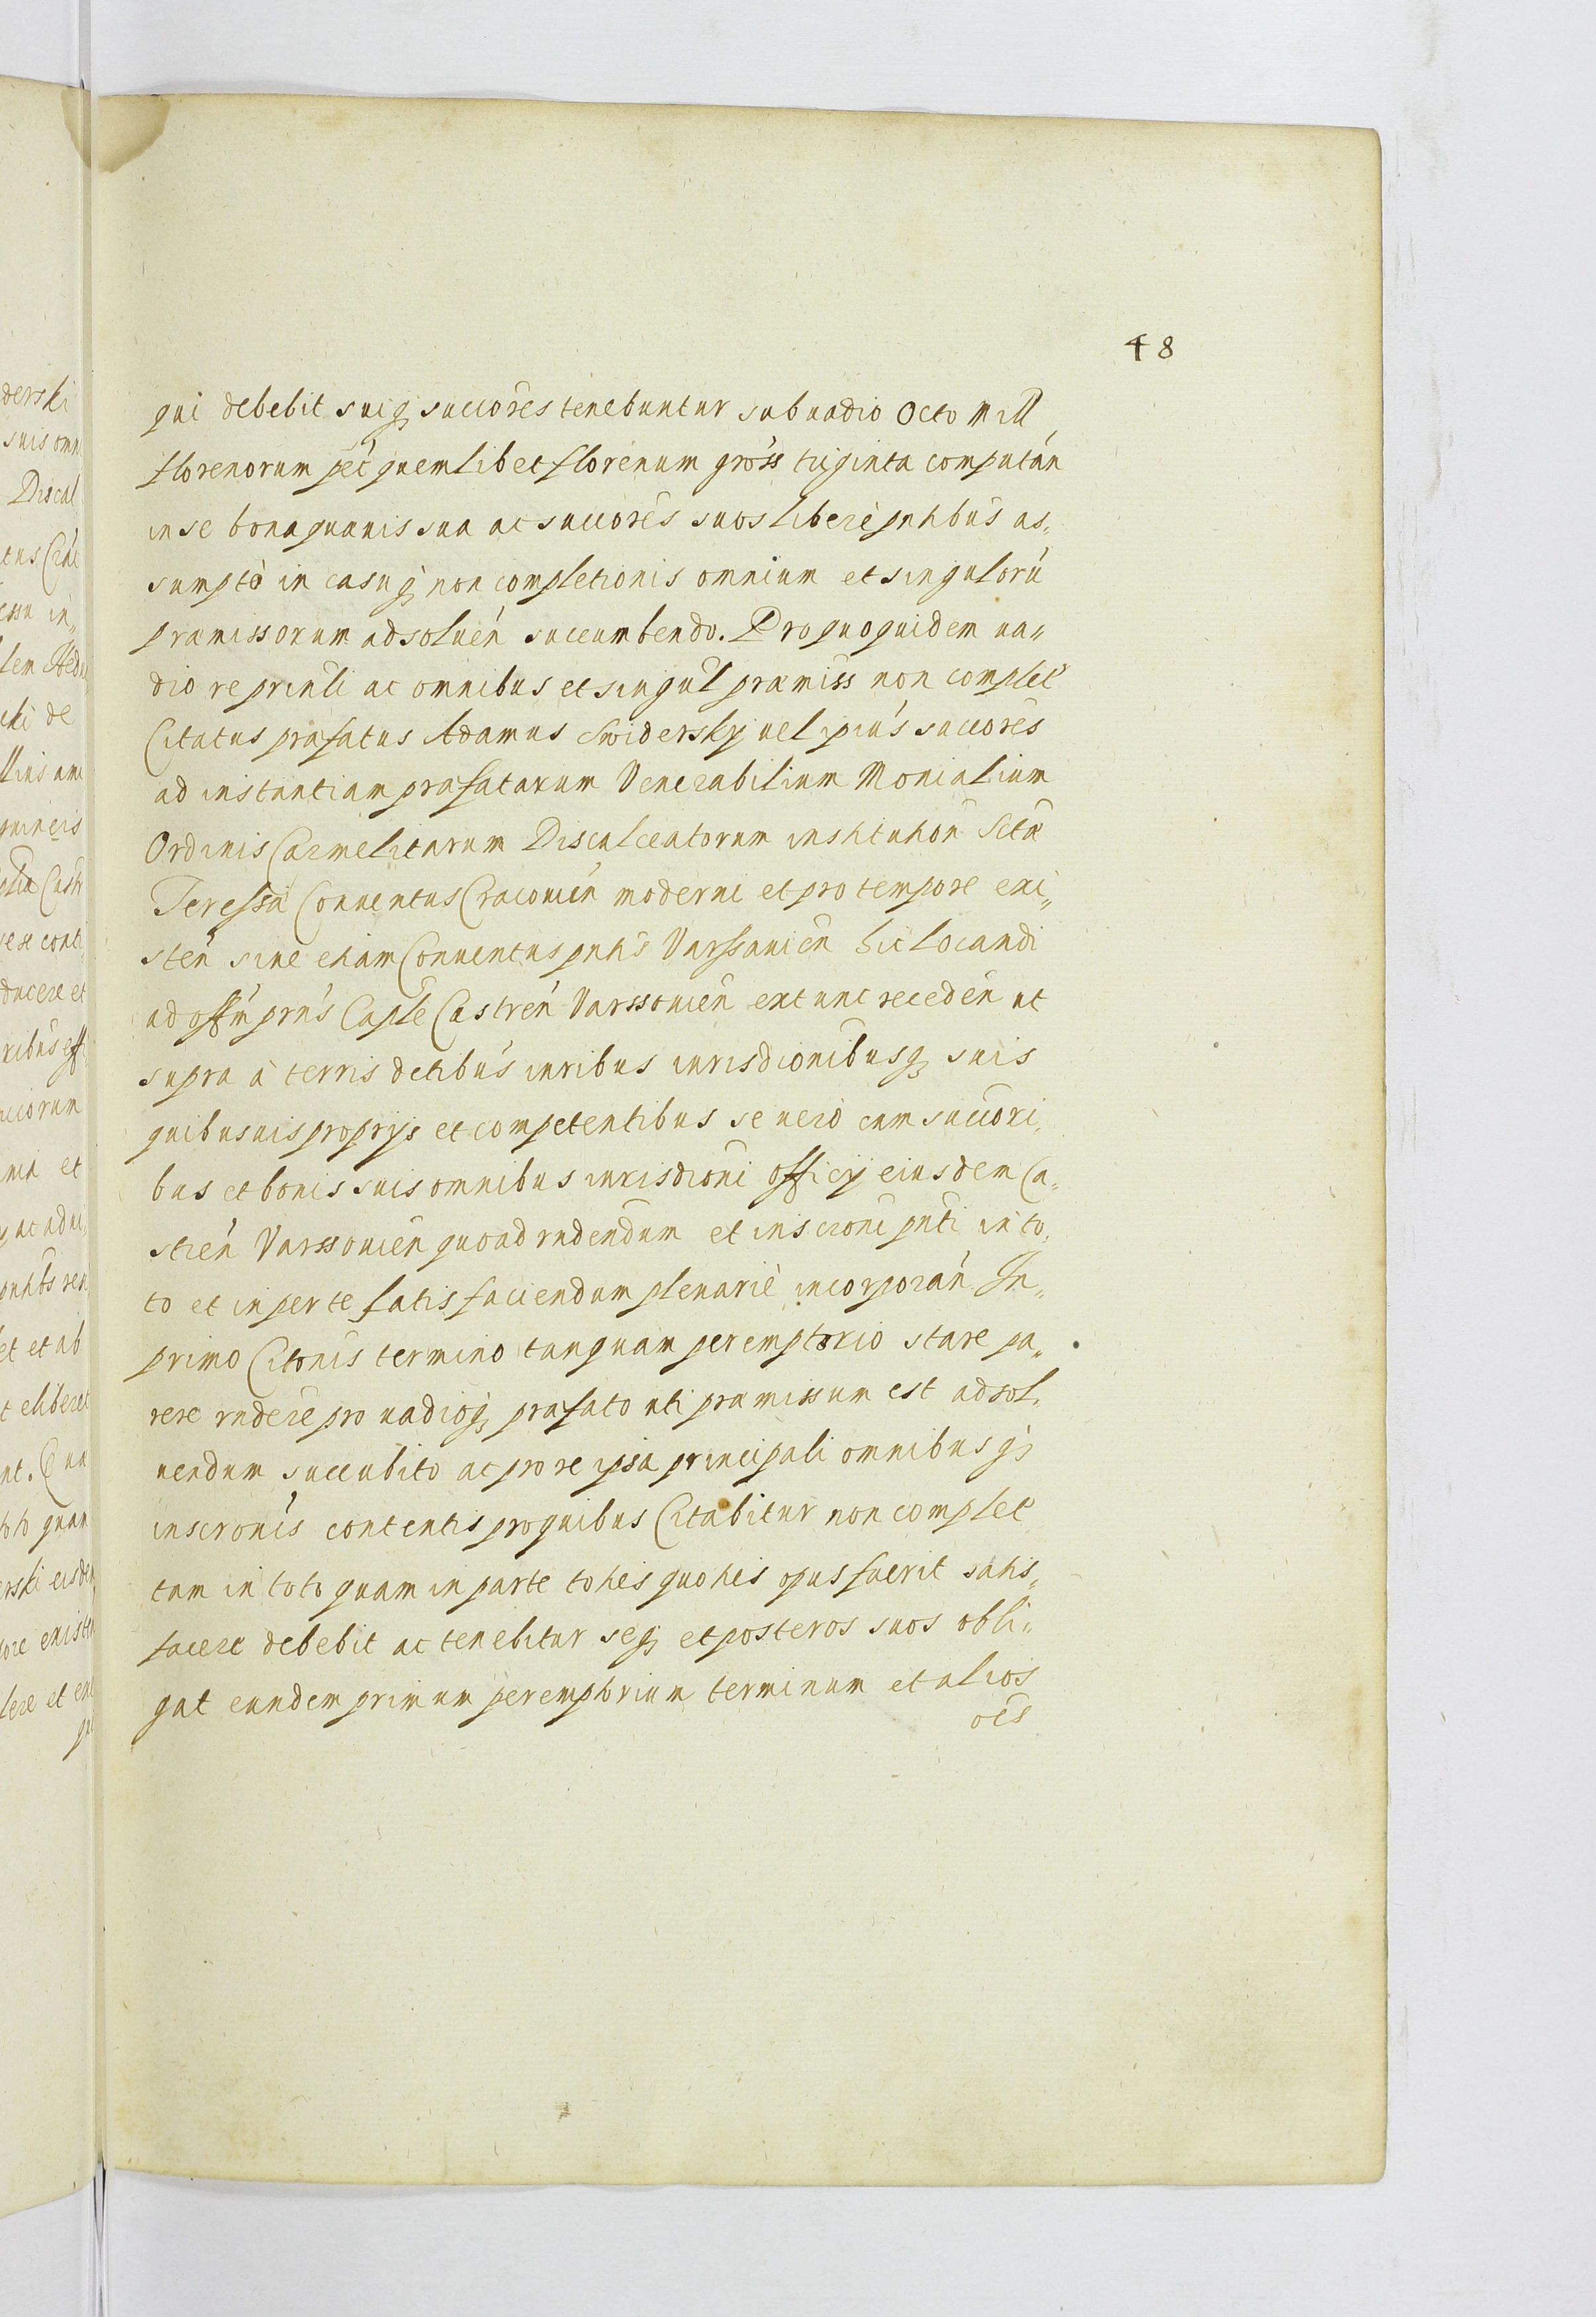 48
qui debebit suiq; succores tenebuntur sub uadio Octo Mill
florenorum pec quemlibet florenum gross triginta computan
in se bona quauis sua ac succores suos libere pntibus as„
sumpto in casuq; non completionis omnium et singuloru
præmissorum ad soluen succumbendo. Pro quo quidem ua„
dio re prinli ac omnibus et singul præmiss non complet
Citatus præfatus Adamus Swidersky uel ipius succores
ad instantiam præfatarum Venerabilium Monialium
Ordinis Carmelitarum Discalceatorum institution Sctæ
Teressæ Conuentus Cracouien moderni et pro tempore exi„
sten siue etiam Conuentus pntis Varssauien hic locandi
ad offm prns Caple Castren Varssouien ex tunc receden ut
supra à terris detibus iuribus iurisdionibusq; suis
quibusuis proprijs et competentibus se uero cum succori„
bus et bonis suis omnibus iurisdioni officij eiusdem Ca„
stren Varssouien quoad rndendum et inscrioni pnti in to„
to et in perte satisfaciendum plenariè incorporan In„
primo Citonis termino tanquam peremptorio stare pa„
rere rndere pro uadioq; præfato uti præmissum est ad sol„
uendum succubito ac pro re ipsa principali omnibusq;
inscronis contentis pro quibus Citabitur non complet
tam in toto quam in parte toties quoties opus fuerit satis„
facere debebit ac tenebitur seq; et posteros suos obli„
gat eundem primum peremptorium terminum et alios
oes
derski
suis omn
Discal
lem
cki de
Castr
ducere et
et
et ab
quan
lere et